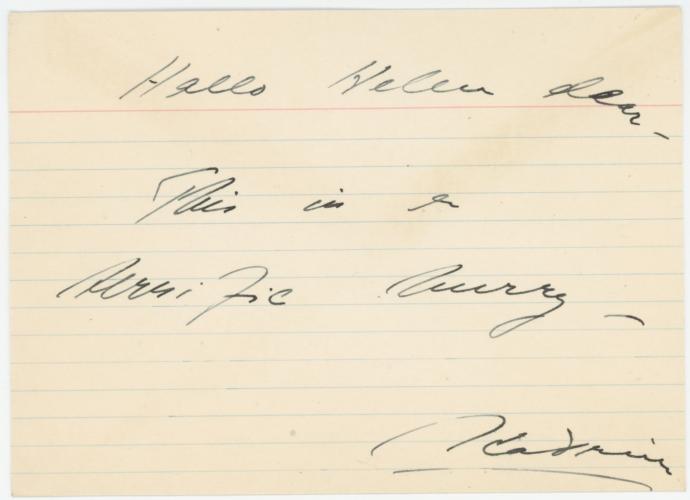 Hallo Helen dear –
This in a
terrific hurry –